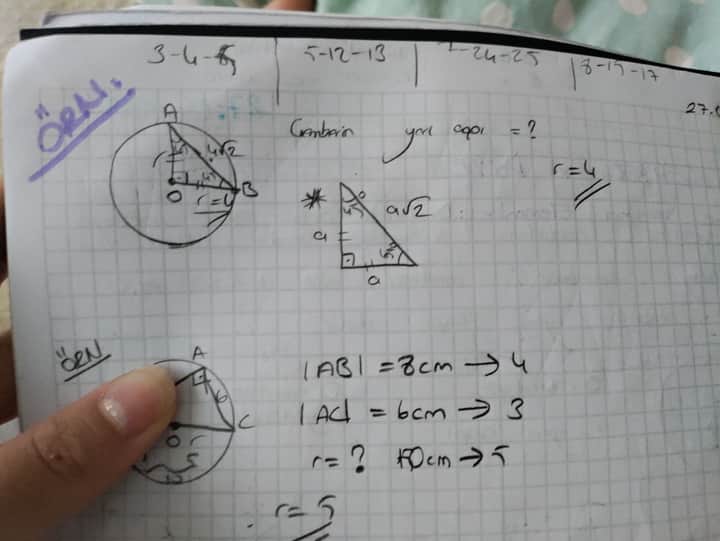 3-4-5 5-12-13 7-24-25 8-15-17
27.
ÖRN:
A
Çemberin yarı çapı = ?
4√2
r
45
45
O r=4 B
r=4
* 45° a√2
a
45°
a
ÖRN
A
6
C
O r
|AB| = 8cm → 4
|AC| = 6cm → 3
r = ? 10cm → 5
r = 5